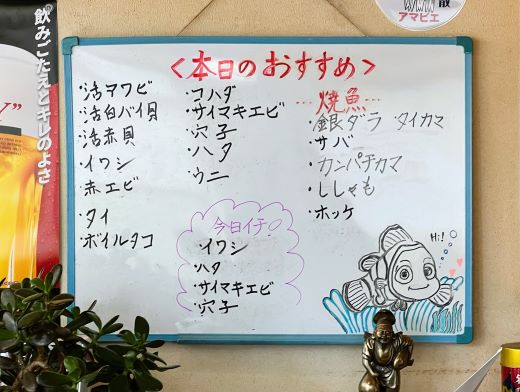 飲みごたえとキレのよさ
アマビエ
<本日のおすすめ>
・活アワビ
・活白バイ貝
・活赤貝
・イワシ
・赤エビ
・タイ
・ボイルタコ
・コハダ
・サイマキエビ
・穴子
・ハタ
・ウニ
今日イチ♡
・イワシ
・ハタ
・サイマキエビ
・穴子
…焼魚…
・銀ダラ タイカマ
・サバ
・カンパチカマ
・ししゃも
・ホッケ
Hi!